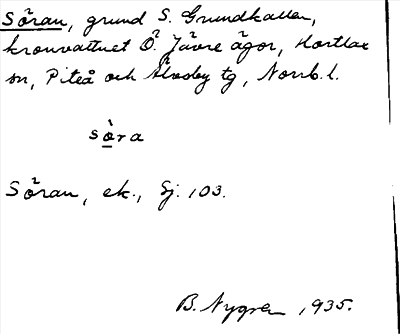 Söran, grund S. Grundkallen,
kronvattnet Ö. Jävre ägor, Hortlax
sn, Piteå och Älvsby tg, Norrb. l.
sòra
Söran, ek., Sj. 103.
B. Nygren 1935.